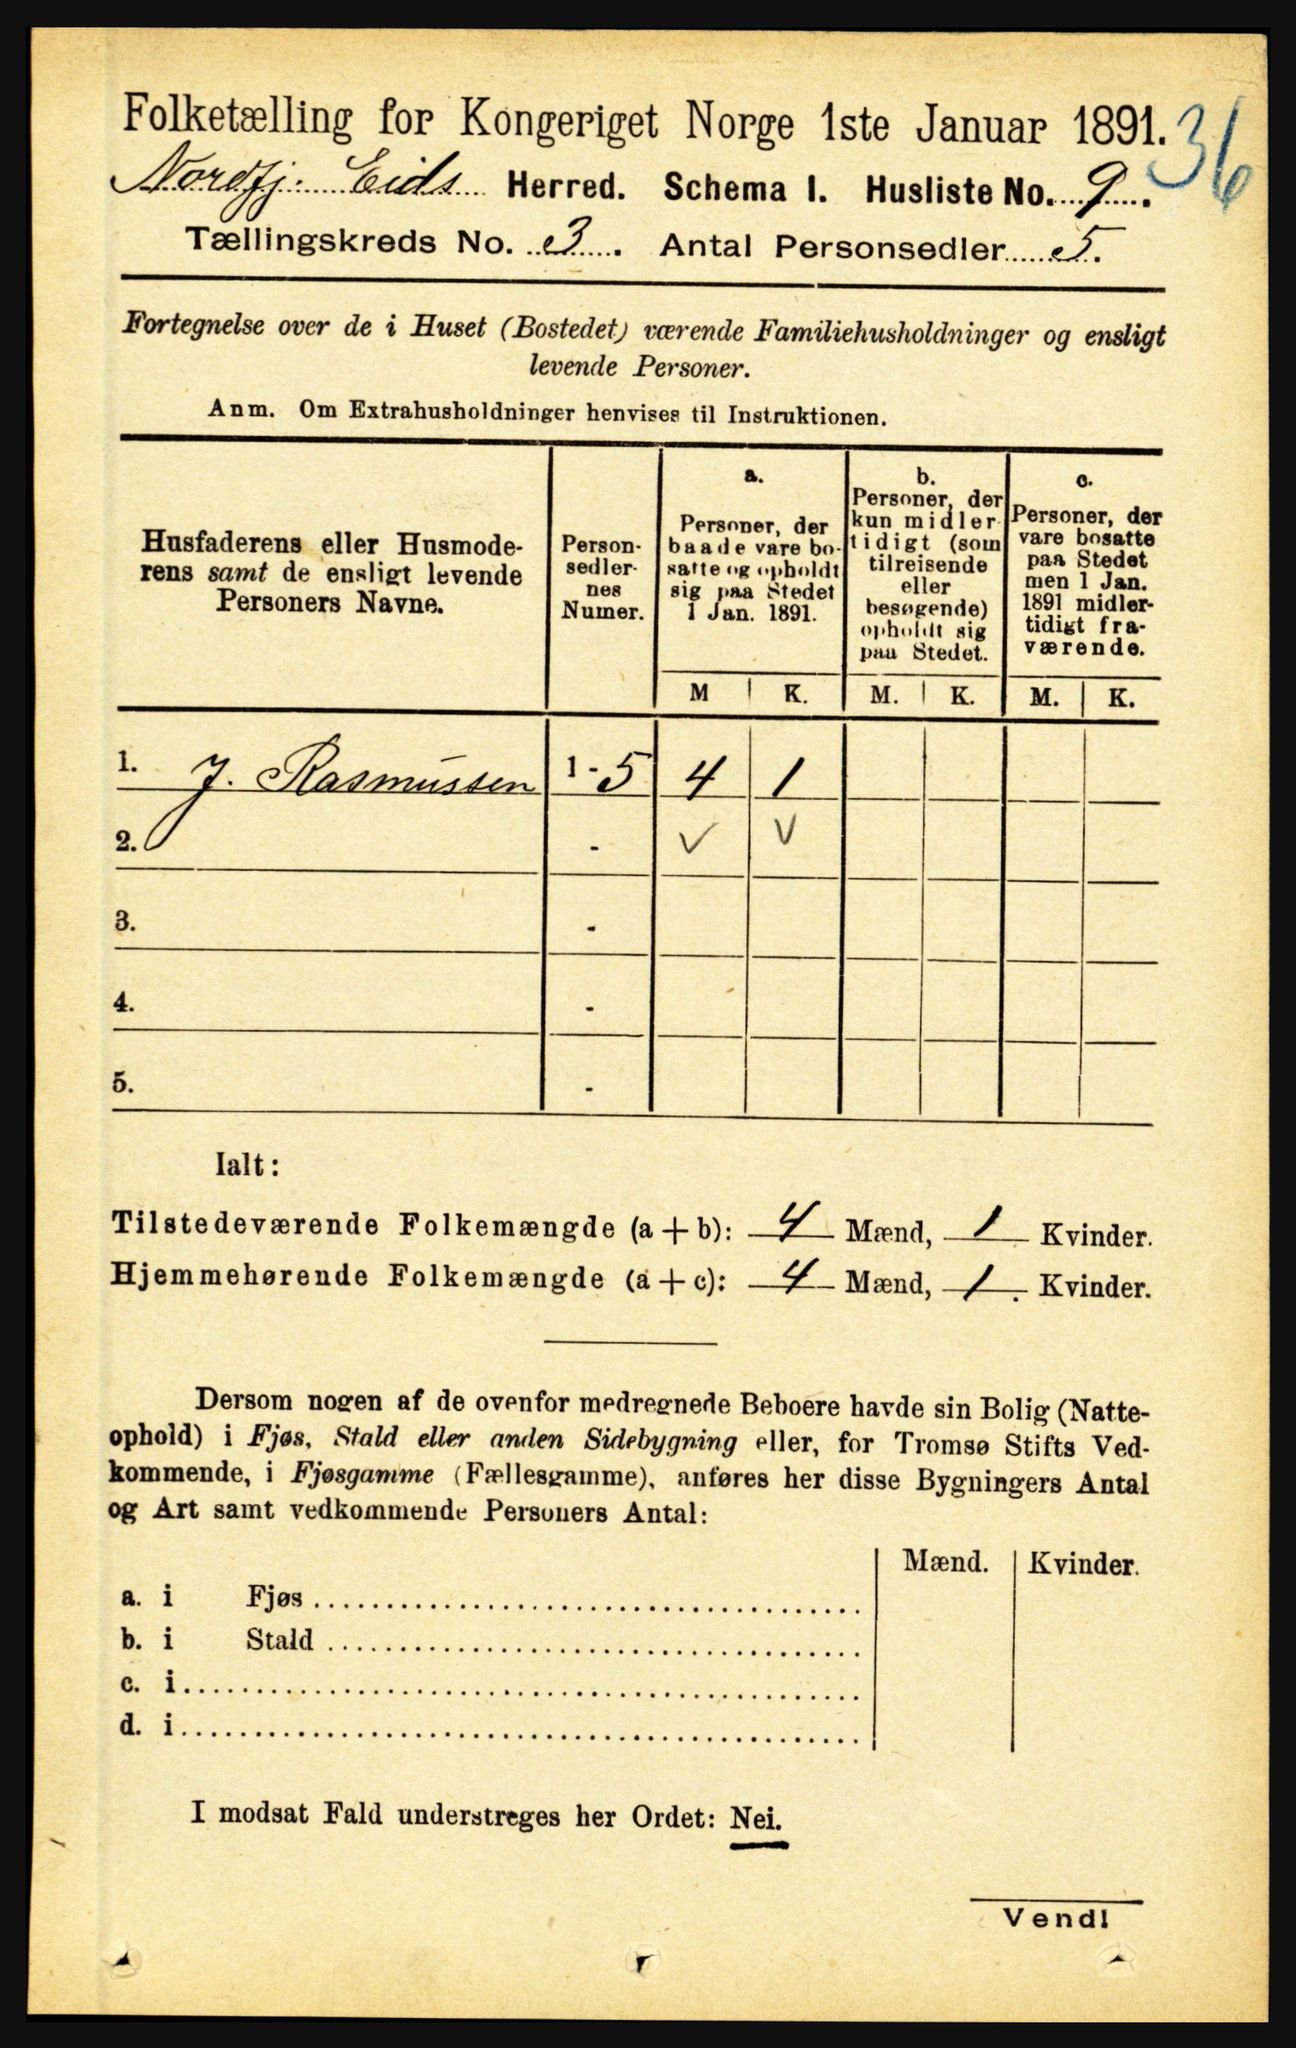 Folketælling for Kongeriget Norge 1ste Januar 1891. 36
Nordfj. Eids Herred. Schema I. Husliste No. 9.
Tællingskreds No. 3. Antal Personsedler 5.
Fortegnelse over de i Huset (Bostedet) værende Familiehusholdninger og ensligt
levende Personer.
Anm. Om Extrahusholdninger henvises til Instruktionen.
Husfaderens eller Husmode-
rens samt de ensligt levende
Personers Navne.
Person-
sedler-
nes
Numer.
a.
Personer, der
baade vare bo-
satte og opholdt
sig paa Stedet
1 Jan. 1891.
b.
Personer, der
kun midler-
tidigt (som
tilreisende
eller
besøgende)
opholdt sig
paa Stedet.
c.
Personer, der
vare bosatte
paa Stedet
men 1 Jan.
1891 midler-
tidigt fra-
værende.
M K. M. K. M. K.
1. J. Rasmussen 1 - 5 4 1
2. - ✓ ✓
3. -
4. -
5. -
Ialt:
Tilstedeværende Folkemængde (a + b): 4 Mænd, 1 Kvinder.
Hjemmehørende Folkemængde (a + c): 4 Mænd, 1. Kvinder.
Dersom nogen af de ovenfor medregnede Beboere havde sin Bolig (Natte-
ophold) i Fjøs, Stald eller anden Sidebygning eller, for Tromsø Stifts Ved-
kommende, i Fjøsgamme (Fællesgamme), anføres her disse Bygningers Antal
og Art samt vedkommende Personers Antal:
Mænd. Kvinder.
a. i Fjøs
b. i Stald
c. i
d. i
I modsat Fald understreges her Ordet: Nei.
Vend!